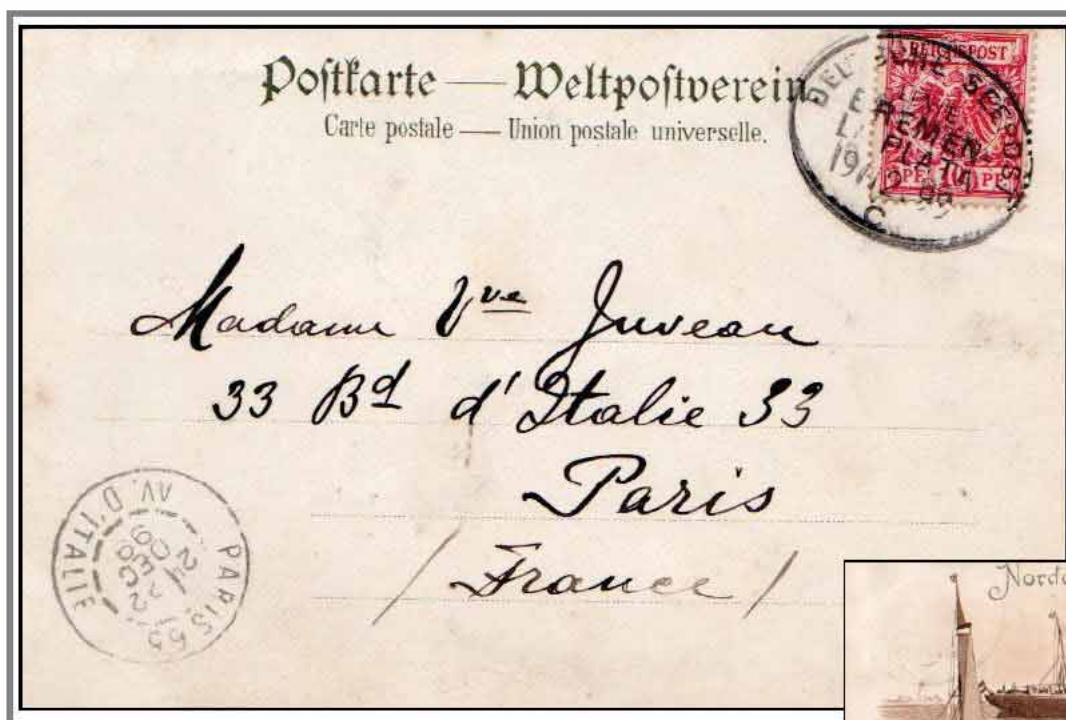 Postkarte — Weltpostverein
Carte postale — Union postale universelle.
REICHSPOST
DEUTSCHE SEEPOST
LINIE
BREMEN-
LA PLATA
19/12 99
C
10 PF
Madame Vve Juveau
33 Bd d'Italie 33
Paris
/ France /
PARIS 53
AV. D'ITALIE
DEC
Nord